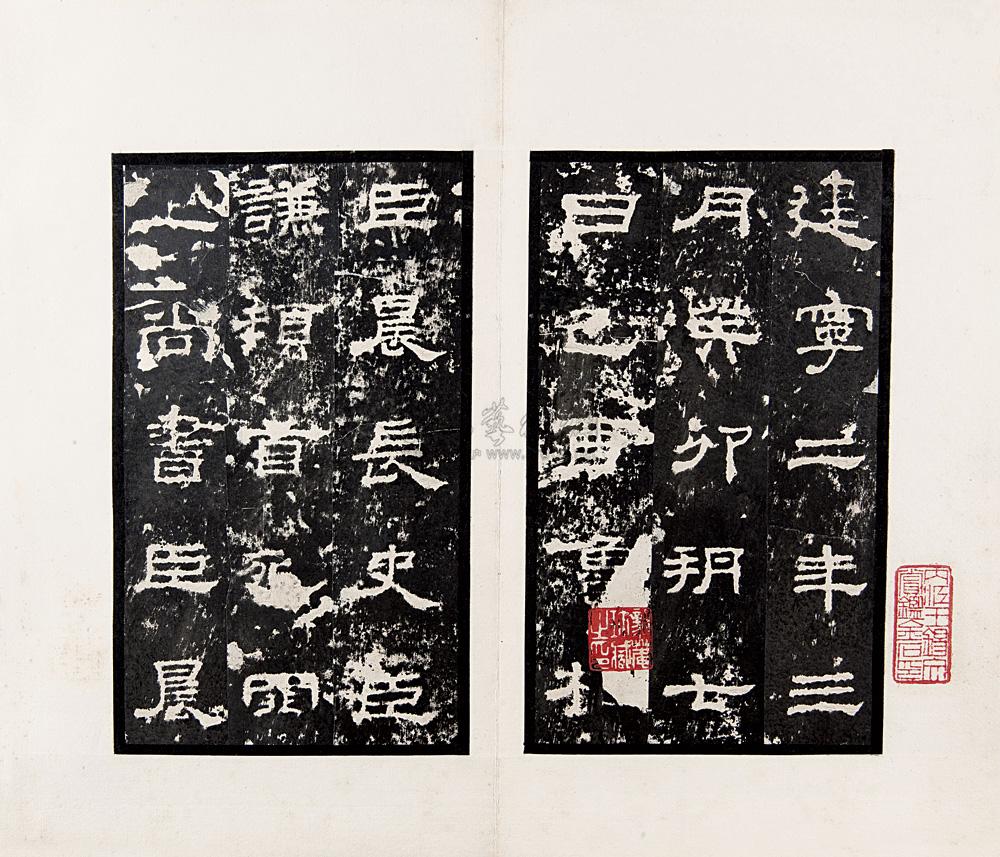 建寧二年三
月癸卯朔七
日己酉魯相
臣晨長史臣
謙頓首死罪
上尚書臣晨